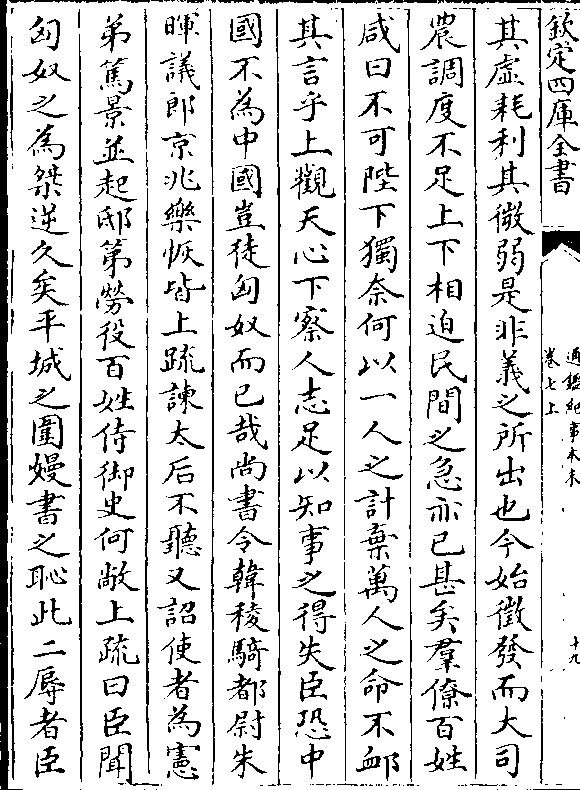 欽定四庫全書
通鑑紀事本末
卷七上
十九
其虛耗利其微弱是非義之所出也今始徵發而大司
農調度不足上下相迫民間之急亦已甚矣羣僚百姓
咸曰不可陛下獨奈何以一人之計棄萬人之命不卹
其言乎上觀天心下察人志足以知事之得失臣恐中
國不為中國豈徒匈奴而已哉尚書令韓稜騎都尉朱
暉議郎京兆樂恢皆上疏諫太后不聽又詔使者為憲
弟篤景並起邸第勞役百姓侍御史何敞上疏曰臣聞
匈奴之為桀逆久矣平城之圍嫚書之恥此二辱者臣